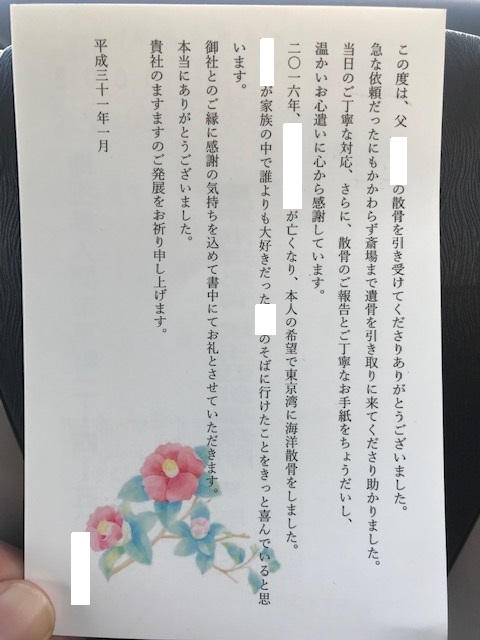 この度は、父
の散骨を引き受けてくださりありがとうございました。
急な依頼だったにもかかわらず斎場まで遺骨を引き取りに来てくださり助かりました。
当日のご丁寧な対応、さらに、散骨のご報告とご丁寧なお手紙をちょうだいし、
温かいお心遣いに心から感謝しています。
二〇一六年、
が亡くなり、本人の希望で東京湾に海洋散骨をしました。
が家族の中で誰よりも大好きだった
のそばに行けたことをきっと喜んでいると思
います。
御社とのご縁に感謝の気持ちを込めて書中にてお礼とさせていただきます。
本当にありがとうございました。
貴社のますますのご発展をお祈り申し上げます。
平成三十一年一月